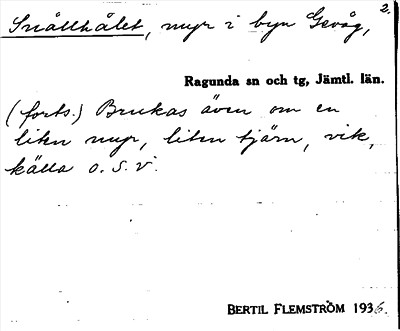 2.
Snållhålet, myr i byn Gevåg,
Ragunda sn och tg, Jämtl. län.
(forts.) Brukas även om en
liten myr, liten tjärn, vik,
källa o.s.v.
BERTIL FLEMSTRÖM 1936.